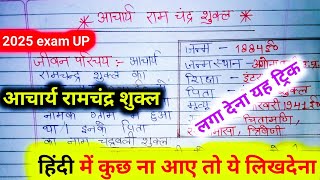 * आचार्य राम चंद्र शुक्ल *
2025 exam UP
जीवन परिचय:- आचार्य
रामचन्द्र शुक्ल का
जन्म - 1884 ई०
जन्मस्थान -
शिक्षा - इंटर
पिता -
आचार्य रामचंद्र शुक्ल
नामक ग्राम में हुआ
था। इनके पिता
का नाम चंद्रबली शुक्ल
मृत्यु 1941 ई०
चिंतामणि,
त्रिवेणी
लगा देना यह ट्रिक
हिंदी में कुछ ना आए तो ये लिखदेना